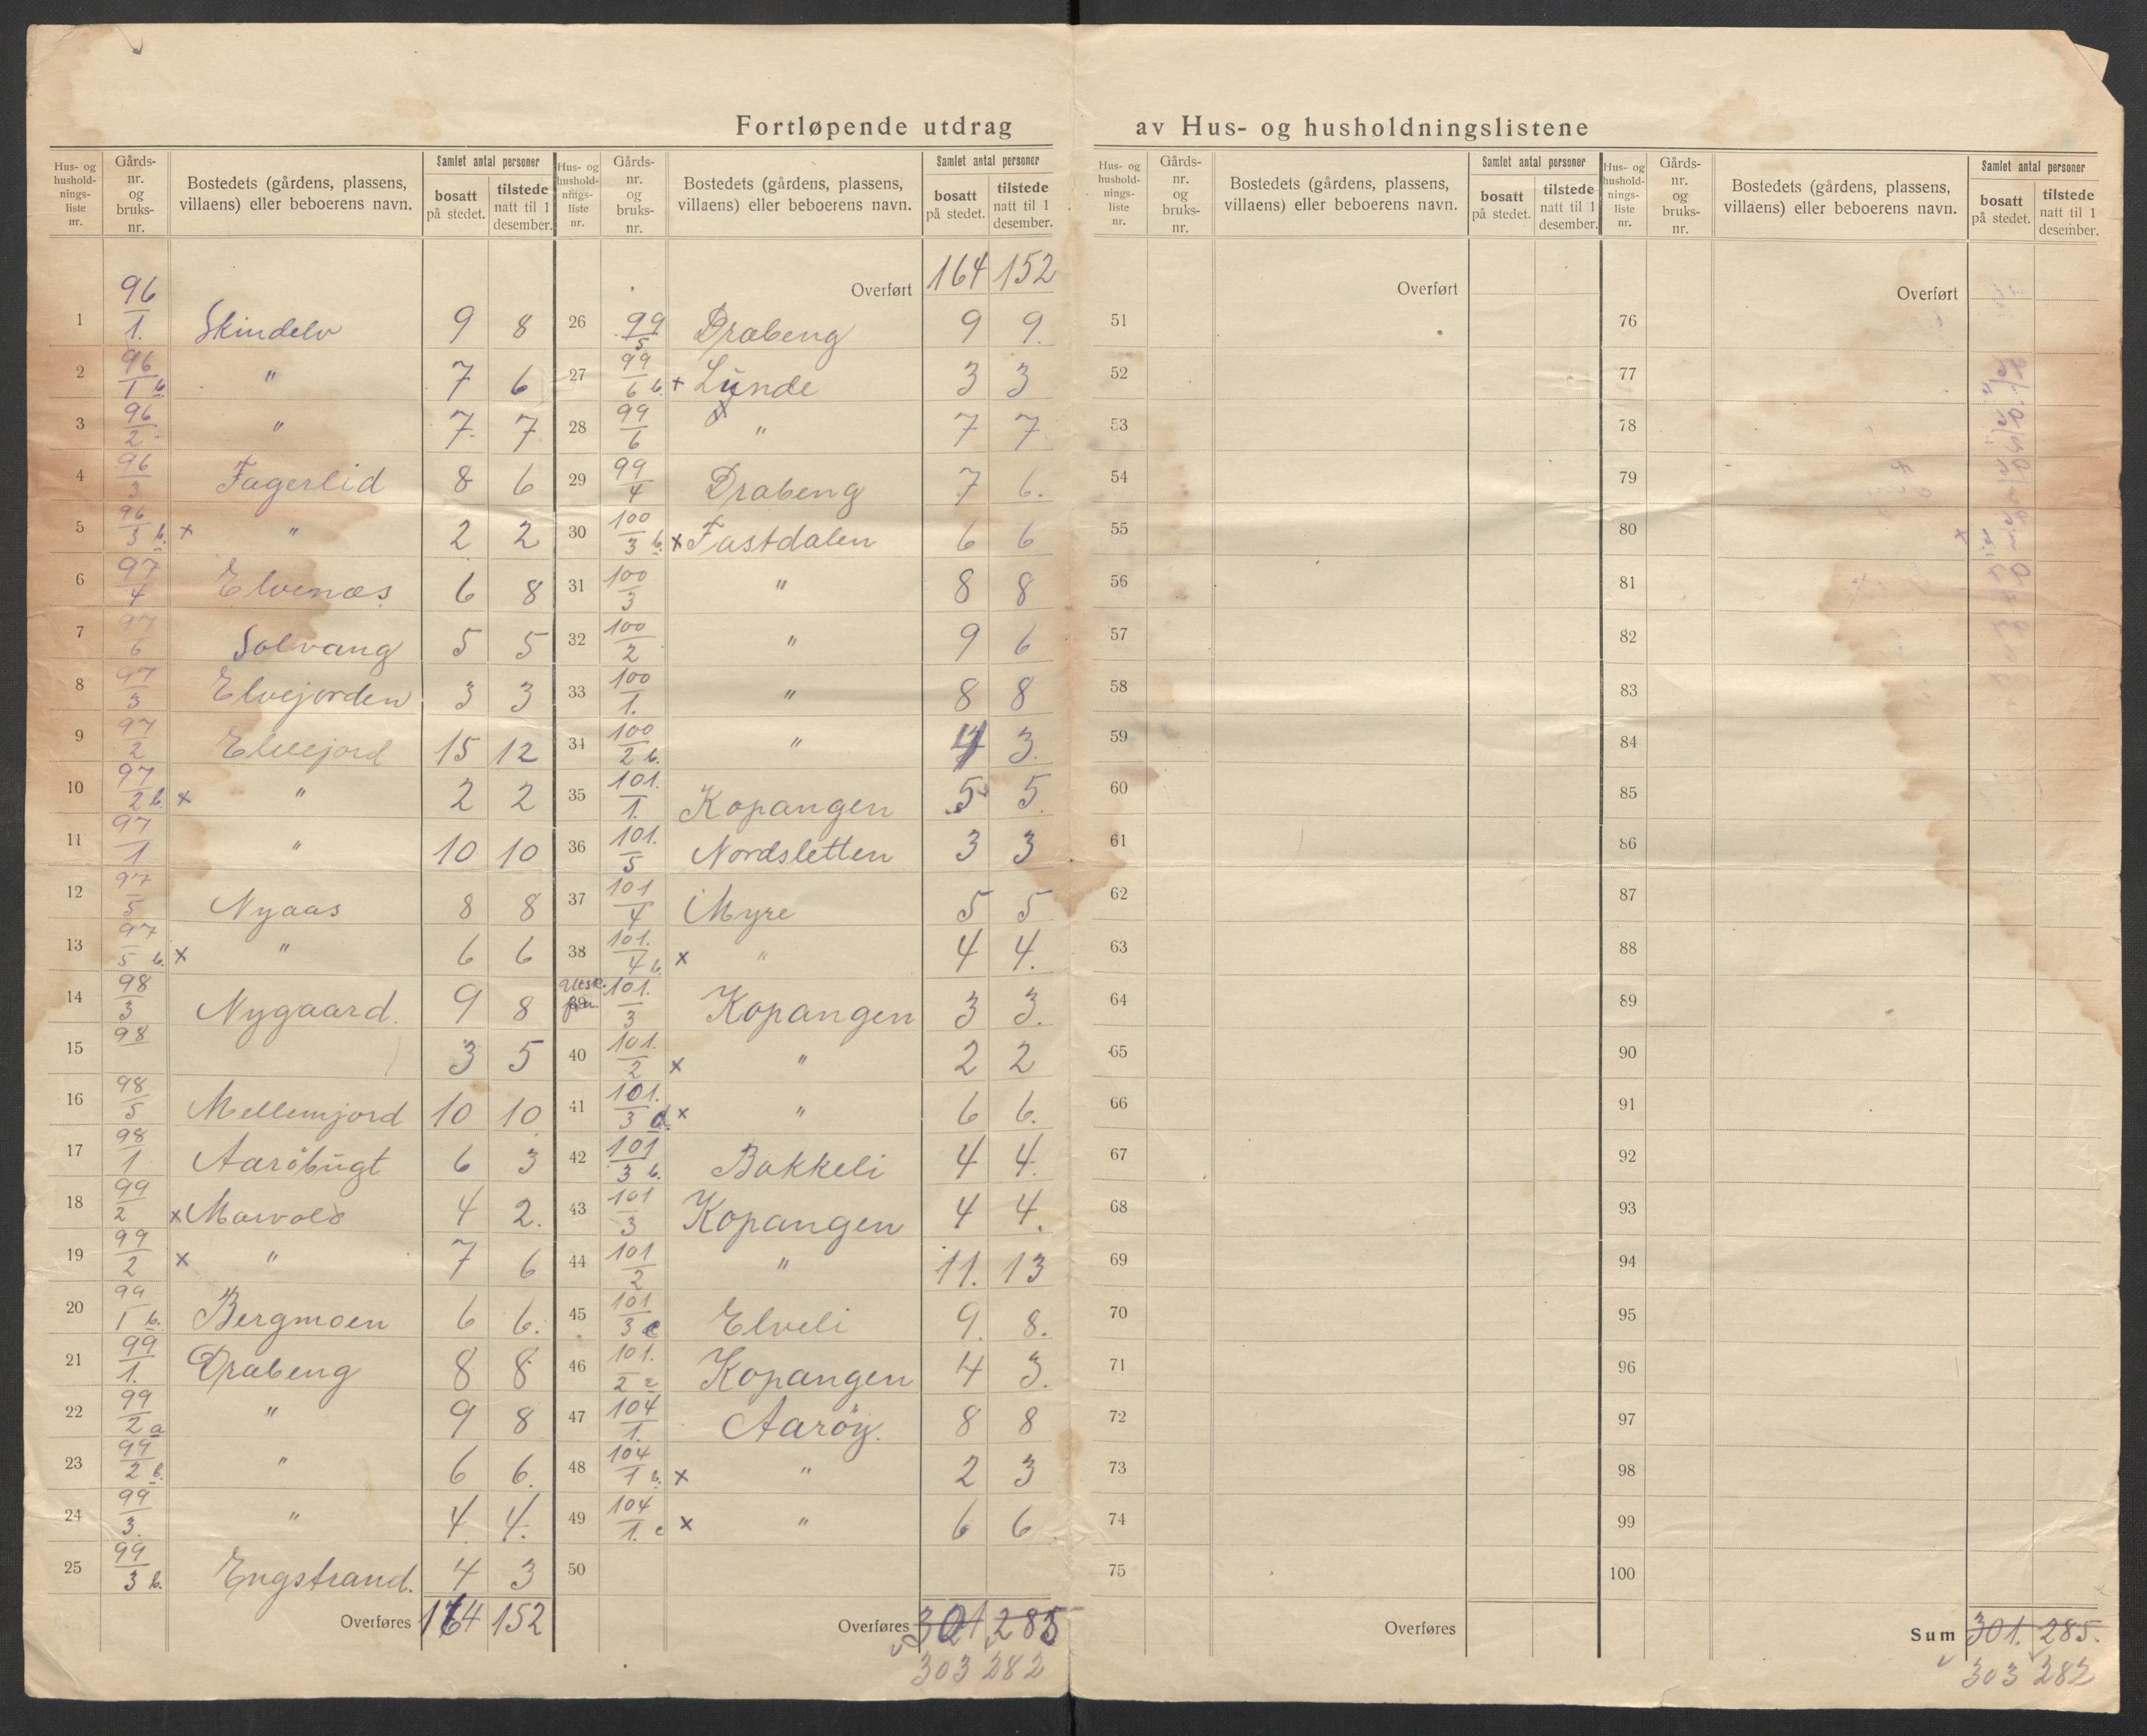 Fortløpende utdrag av Hus- og husholdningslistene
Hus- og hushold-nings-liste nr. | Gårds-nr. og bruks-nr. | Bostedets (gårdens, plassens, villaens) eller beboerens navn. | Samlet antal personer | bosatt på stedet. | tilstede natt til 1 desember.
1 96/1. Skindelv 9 8
2 96/1 b. " 7 6
3 96/2 " 7 7
4 96/3 Fagerlid 8 6
5 96/3 b. x " 2 2
6 97/4 Elvenæs 6 8
7 97/6 Solvang 5 5
8 97/3 Elvejorden 3 3
9 97/2 Elvejord 15 12
10 97/2 b. x " 2 2
11 97/1 " 10 10
12 97/5 Nyaas 8 8
13 97/5 b. x " 6 6
14 98/3 Nygaard. 9 8
15 98 3 5
16 98/5 Mellemjord 10 10
17 98/1 Aarøbugt 6 3
18 99/2 x Marvold 4 2.
19 99/2 x " 7 6
20 99/1 b. Bergmoen 6 6.
21 99/1. Drabeng 8 8
22 99/2 a " 9 8
23 99/2 b. " 6 6.
24 99/3. " 4 4.
25 99/3 b. Engstrand. 4 3
Overføres 164 152
Hus- og hushold-nings-liste nr. | Gårds-nr. og bruks-nr. | Bostedets (gårdens, plassens, villaens) eller beboerens navn. | Samlet antal personer | bosatt på stedet. | tilstede natt til 1 desember.
Overført 164 152
26 99/5 Drabeng 9 9.
27 99/6 b. x Lunde 3 3
28 99/6 x " 7 7
29 99/4 Drabeng 7 6.
30 100/3 b. x Fastdalen 6 6
31 100/3 " 8 8
32 100/2 " 9 6
33 100/1. " 8 8
34 100/2 b. " 4 3.
35 101./1. Kopangen 5 5.
36 101./5 Nordsletten 3 3
37 101/4 Myre 5 5
38 101./4 b. x " 4 4.
39 101./3 Kopangen 3 3.
40 101./2 x " 2 2
41 101./3 d. x " 6 6.
42 101/3 b. Bakkeli 4 4.
43 101/3 Kopangen 4 4.
44 101/2 " 11. 13
45 101/3 c Elveli 9. 8.
46 101./2 c Kopangen 4 3.
47 104/1. Aarøy. 8 8
48 104/1 b. x " 2 3
49 104/1. c x " 6 6
50
Overføres 301 285
303 282
Hus- og hushold-nings-liste nr. | Gårds-nr. og bruks-nr. | Bostedets (gårdens, plassens, villaens) eller beboerens navn. | Samlet antal personer | bosatt på stedet. | tilstede natt til 1 desember.
Overført
51
52
53
54
55
56
57
58
59
60
61
62
63
64
65
66
67
68
69
70
71
72
73
74
75
Overføres
Hus- og hushold-nings-liste nr. | Gårds-nr. og bruks-nr. | Bostedets (gårdens, plassens, villaens) eller beboerens navn. | Samlet antal personer | bosatt på stedet. | tilstede natt til 1 desember.
Overført
76
77
78
79
80
81
82
83
84
85
86
87
88
89
90
91
92
93
94
95
96
97
98
99
100
Sum 301. 285.
303 282